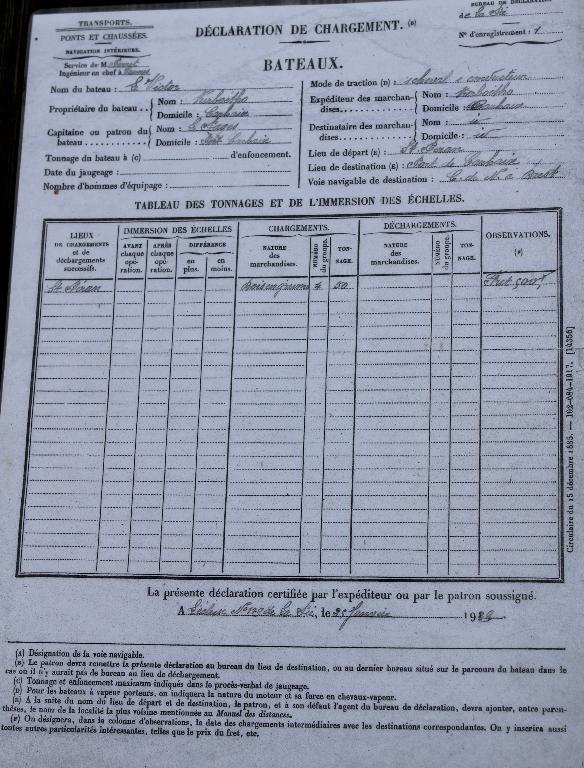 TRANSPORTS.
PONTS ET CHAUSSÉES.
NAVIGATION INTÉRIEURE.
Service de M.
Ingénieur en chef à
DÉCLARATION DE CHARGEMENT. (B)
BATEAUX.
BUREAU DE DÉCLARATION
de
N° d'enregistrement : 1
Nom du bateau : Le Victor
Propriétaire du bateau . . { Nom :
Domicile : Carhaix
Capitaine ou patron du bateau . . . . . . . { Nom :
Domicile : Port Carhaix
Tonnage du bateau à (C) d'enfoncement.
Date du jaugeage :
Nombre d'hommes d'équipage :
Mode de traction (D) : 1 cheval 1 conducteur
Expéditeur des marchandises. . . . . { Nom :
Domicile : Carhaix
Destinataire des marchandises. . . . . { Nom :
Domicile :
Lieu de départ (E) : St
Lieu de destination (E) : Port de Carhaix
Voie navigable de destination : C. de N. à Brest
TABLEAU DES TONNAGES ET DE L'IMMERSION DES ÉCHELLES.
LIEUX DE CHARGEMENTS et de déchargements successifs.
IMMERSION DES ÉCHELLES
AVANT chaque opération.
APRÈS chaque opération.
DIFFÉRENCE
en plus.
en moins.
CHARGEMENTS.
NATURE des marchandises.
NUMÉRO du groupe.
TONNAGE.
DÉCHARGEMENTS.
NATURE des marchandises.
NUMÉRO du groupe.
TONNAGE.
OBSERVATIONS. (F)
St 50 Fret
Circulaire du 15 décembre 1885. — 102-084-1917. [14356]
La présente déclaration certifiée par l'expéditeur ou par le patron soussigné.
A Écluse, le Janvier 19
(A) Désignation de la voie navigable.
(B) Le patron devra remettre la présente déclaration au bureau du lieu de destination, ou au dernier bureau situé sur le parcours du bateau dans le
cas où il n'y aurait pas de bureau au lieu de déchargement.
(C) Tonnage et enfoncement maximum indiqués dans le procès-verbal de jaugeage.
(D) Pour les bateaux à vapeur porteurs, on indiquera la nature du moteur et sa force en chevaux-vapeur.
(E) A la suite du nom du lieu de départ et de destination, le patron, et à son défaut l'agent du bureau de déclaration, devra ajouter, entre parenthèses, le nom de la localité la plus voisine mentionnée au Manuel des distances.
(F) On désignera, dans la colonne d'observations, la date des chargements intermédiaires avec les destinations correspondantes. On y inscrira aussi
toutes autres particularités intéressantes, telles que le prix du fret, etc.